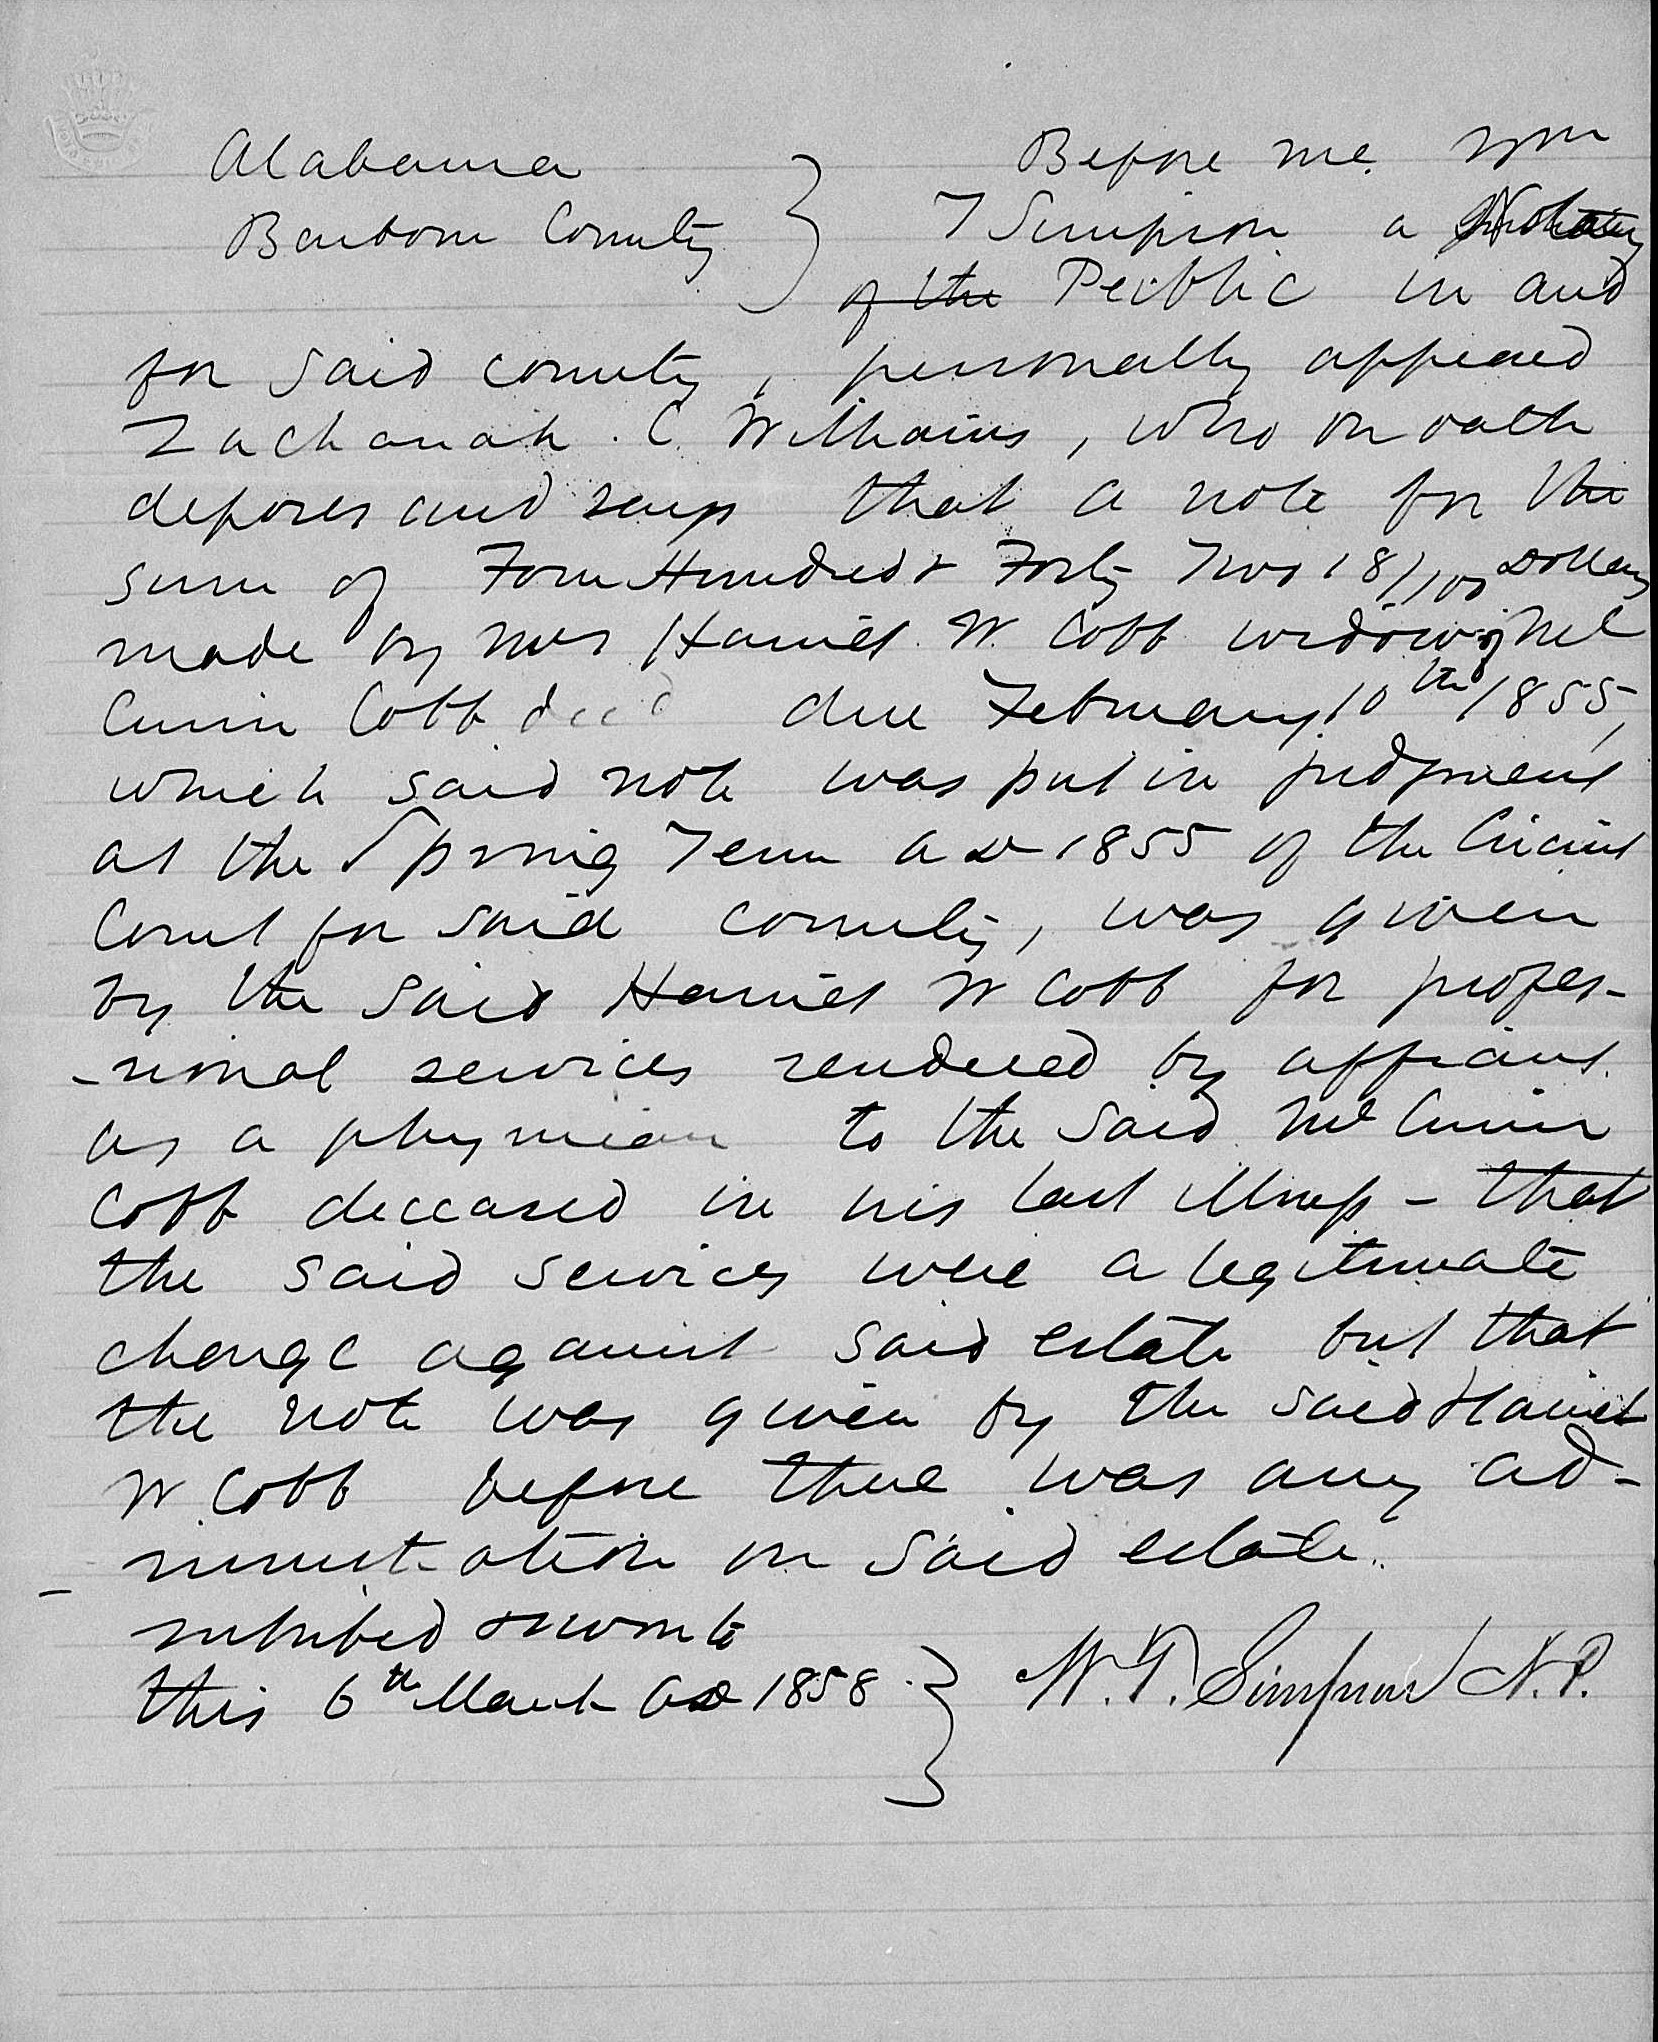 Alabama
Barbour County
Before me Wm
T Simpson a Notary
of the Public in and
for said county, personally appeared
Zachariah C. Williams, who on oath
deposes and says that a note for the
sum of Four Hundred & Forty Two 18/100 Dollars
made by Mrs Harriet W. Cobb widow of McC
Cuin Cobb decd due February 10th 1855,
which said note was put in judgment
at the Spring Term AD 1855 of the Circuit
Court for said county, was given
by the said Harriet W Cobb for profes-
-sional services rendered by affiant
as a physician to the said
Cobb deceased in his last illness - that
the said services were a legitimate
charge against said estate but that
the note was given by the said Harriet
W Cobb before there was any ad-
-ministration on said estate.
subscribed & sworn to
this 6th March AD 1858
W. T. Simpson N. P.